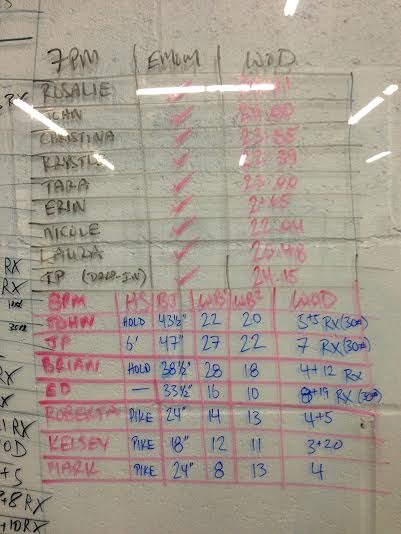 7PM EMOM WOD
ROSALIE ✓
✓
CHRISTINA ✓ 23:35
KRYSTLE ✓ 22:39
TARA ✓ 23:00
ERIN ✓
NICOLE ✓ 22:04
LAURA ✓ 20:48
JP (DROP-IN) ✓ 24:15
8PM HS BJ WB¹ WB² WOD
JOHN HOLD 43½" 22 20 RX (30#)
JP 6' 47" 27 22 7 RX (30#)
BRIAN HOLD 38½" 28 18 4+12 RX
ED — 33½" 16 10 RX (30#)
ROBERTA PIKE 24" 14 13 4+5
KELSEY PIKE 18" 12 11 3+20
MARK PIKE 24" 8 13 4
RX
RX
RX
RX
+5
+8 RX
+10 RX